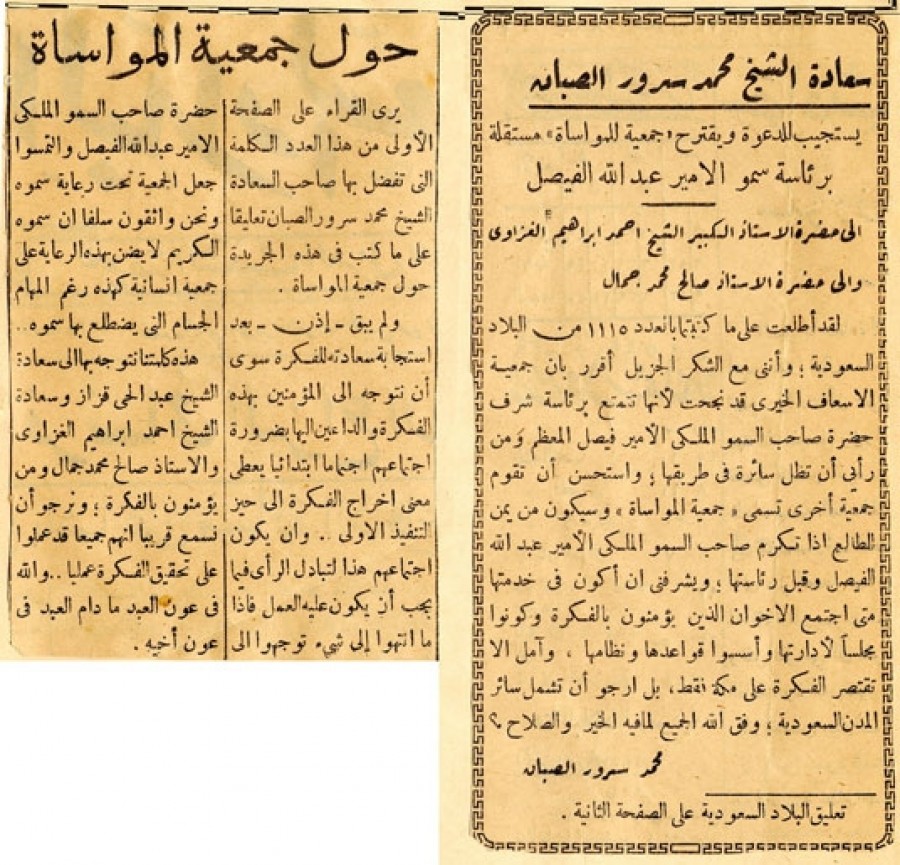 سعادة الشيخ محمد سرور الصبان
يستجيب للدعوة ويقترح «جمعية للمواساة» مستقلة
برئاسة سمو الامير عبد الله الفيصل
الى حضرة الاستاذ الكبير الشيخ احمد ابراهيم الغزاوى
والى حضرة الاستاذ صالح محمد جمال
لقد أطلعت على ما كتبتما بالعدد ١١١٥ من البلاد
السعودية ؛ وأننى مع الشكر الجزيل أقرر بان جمعية
الاسعاف الخيرى قد نجحت لأنها تتمتع برئاسة شرف
حضرة صاحب السمو الملكى الأمير فيصل المعظم ومن
رأيى أن تظل سائرة فى طريقها ؛ واستحسن أن تقوم
جمعية أخرى تسمى « جمعية المواساة » وسيكون من يمن
الطالع اذا تكرم صاحب السمو الملكى الأمير عبد الله
الفيصل وقبل رئاستها ؛ ويشرفنى ان أكون فى خدمتها
متى اجتمع الاخوان الذين يؤمنون بالفكرة وكونوا
مجلساً لأدارتها وأسسوا قواعدها ونظامها ، وآمل الا
تقتصر الفكرة على مكة فقط، بل ارجو أن تشمل سائر
المدن السعودية ؛ وفق الله الجميع لمافيه الخير والصلاح ؟
محمد سرور الصبان
تعليق البلاد السعودية على الصفحة الثانية .
حول جمعية المواساة
يرى القراء على الصفحة
الأولى من هذا العدد الكلمة
التى تفضل بها صاحب السعادة
الشيخ محمد سرور الصبان تعليقا
على ما كتب فى هذه الجريدة
حول جمعية المواساة .
ولم يبق - إذن - بعد
استجابة سعادته للفكرة سوى
أن نتوجه الى المؤمنين بهذه
الفكرة والداعين اليها بضرورة
اجتماعهم اجتماعا ابتدائيا يعطى
معنى اخراج الفكرة الى حيز
التنفيذ الاولى .. وان يكون
اجتماعهم هذا لتبادل الرأى فيما
يجب أن يكون عليه العمل فاذا
ما انتهوا إلى شىء توجهوا الى
حضرة صاحب السمو الملكى
الامير عبدالله الفيصل والتمسوا
جعل الجمعية تحت رعاية سموه
ونحن واثقون سلفا ان سموه
الكريم لا يضن بهذه الرعاية على
جمعية انسانية كهذه رغم المهام
الجسام التى يضطلع بها سموه ..
هذه كلمتنا نتوجه بها الى سعادة
الشيخ عبد الحى قزاز وسعادة
الشيخ احمد ابراهيم الغزاوى
والاستاذ صالح محمد جمال ومن
يؤمنون بالفكرة ؛ ونرجو أن
نسمع قريبا انهم جميعا قد عملوا
على تحقيق الفكرة عمليا .. والله
فى عون العبد ما دام العبد فى
عون أخيه .